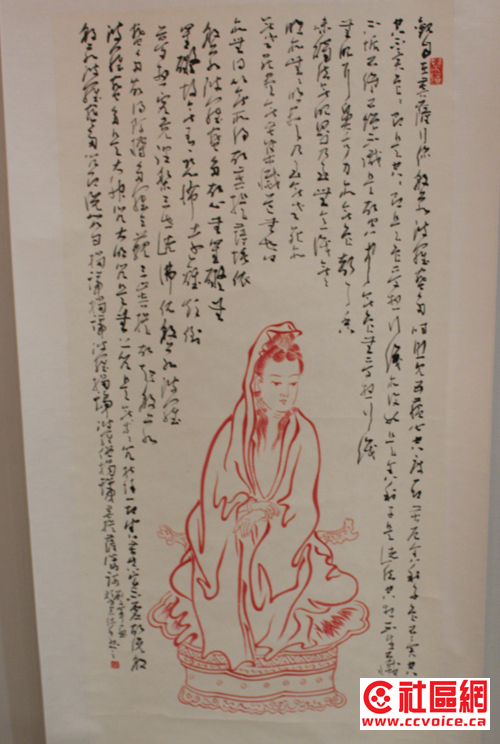 觀自在菩薩行深般若波羅蜜多時照見五蘊皆空度一切苦厄舍利子色不異空
空不異色色即是空空即是色受想行識亦復如是舍利子是諸法空相不生不滅
不垢不淨不增不減是故空中無色無受想行識
無眼耳鼻舌身意無色聲香
味觸法無眼界乃至無意識界無
無明亦無無明盡乃至無老死亦
無老死盡無苦集滅道無智
亦無得以無所得故菩提薩埵依
般若波羅蜜多故心無罣礙無
罣礙故無有恐怖遠離顛倒
夢想究竟涅槃三世諸佛依般若波羅
蜜多故得阿耨多羅三藐三菩提故知般若
波羅蜜多是大神咒是大明咒是無上咒是無等等咒能除一切苦真實不虛故說般
若波羅蜜多咒即說咒曰揭諦揭諦波羅揭諦波羅僧揭諦菩提薩婆訶
社區網
www.ccvoice.ca